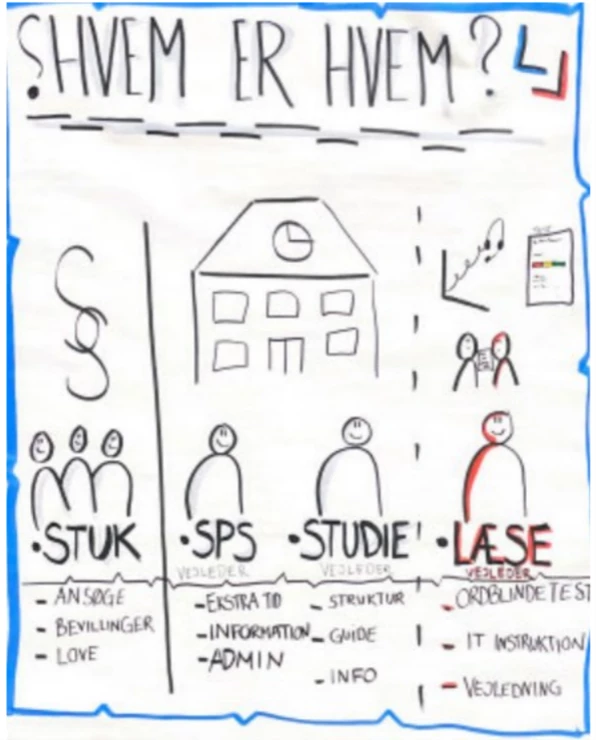 ?HVEM ER HVEM?
§
STUK
- ANSØGE
- BEVILLINGER
- LOVE
SPS
VEJLEDER
- EKSTRA TID
- INFORMATION
- ADMIN
STUDIE
VEJLEDER
- STRUKTUR
- GUIDE
- INFO
LÆSE
VEJLEDER
- ORDBLINDETEST
- IT INSTRUKTION
- VEJLEDNING